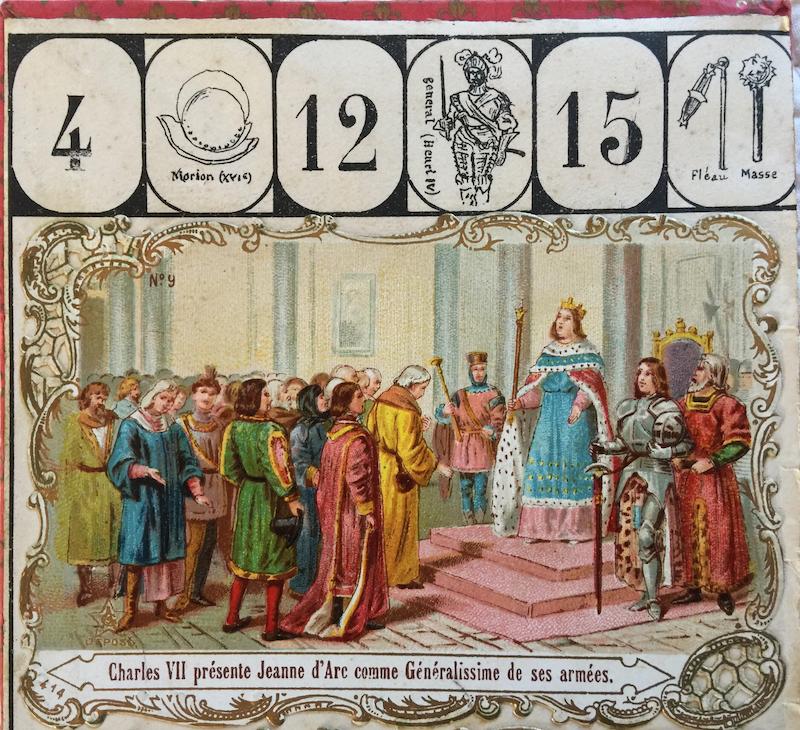 4
Morion (XVIe)
12
Général (Henri IV)
15
Fléau Masse
No 9
DÉPOSÉ
Charles VII présente Jeanne d'Arc comme Généralissime de ses armées.
414